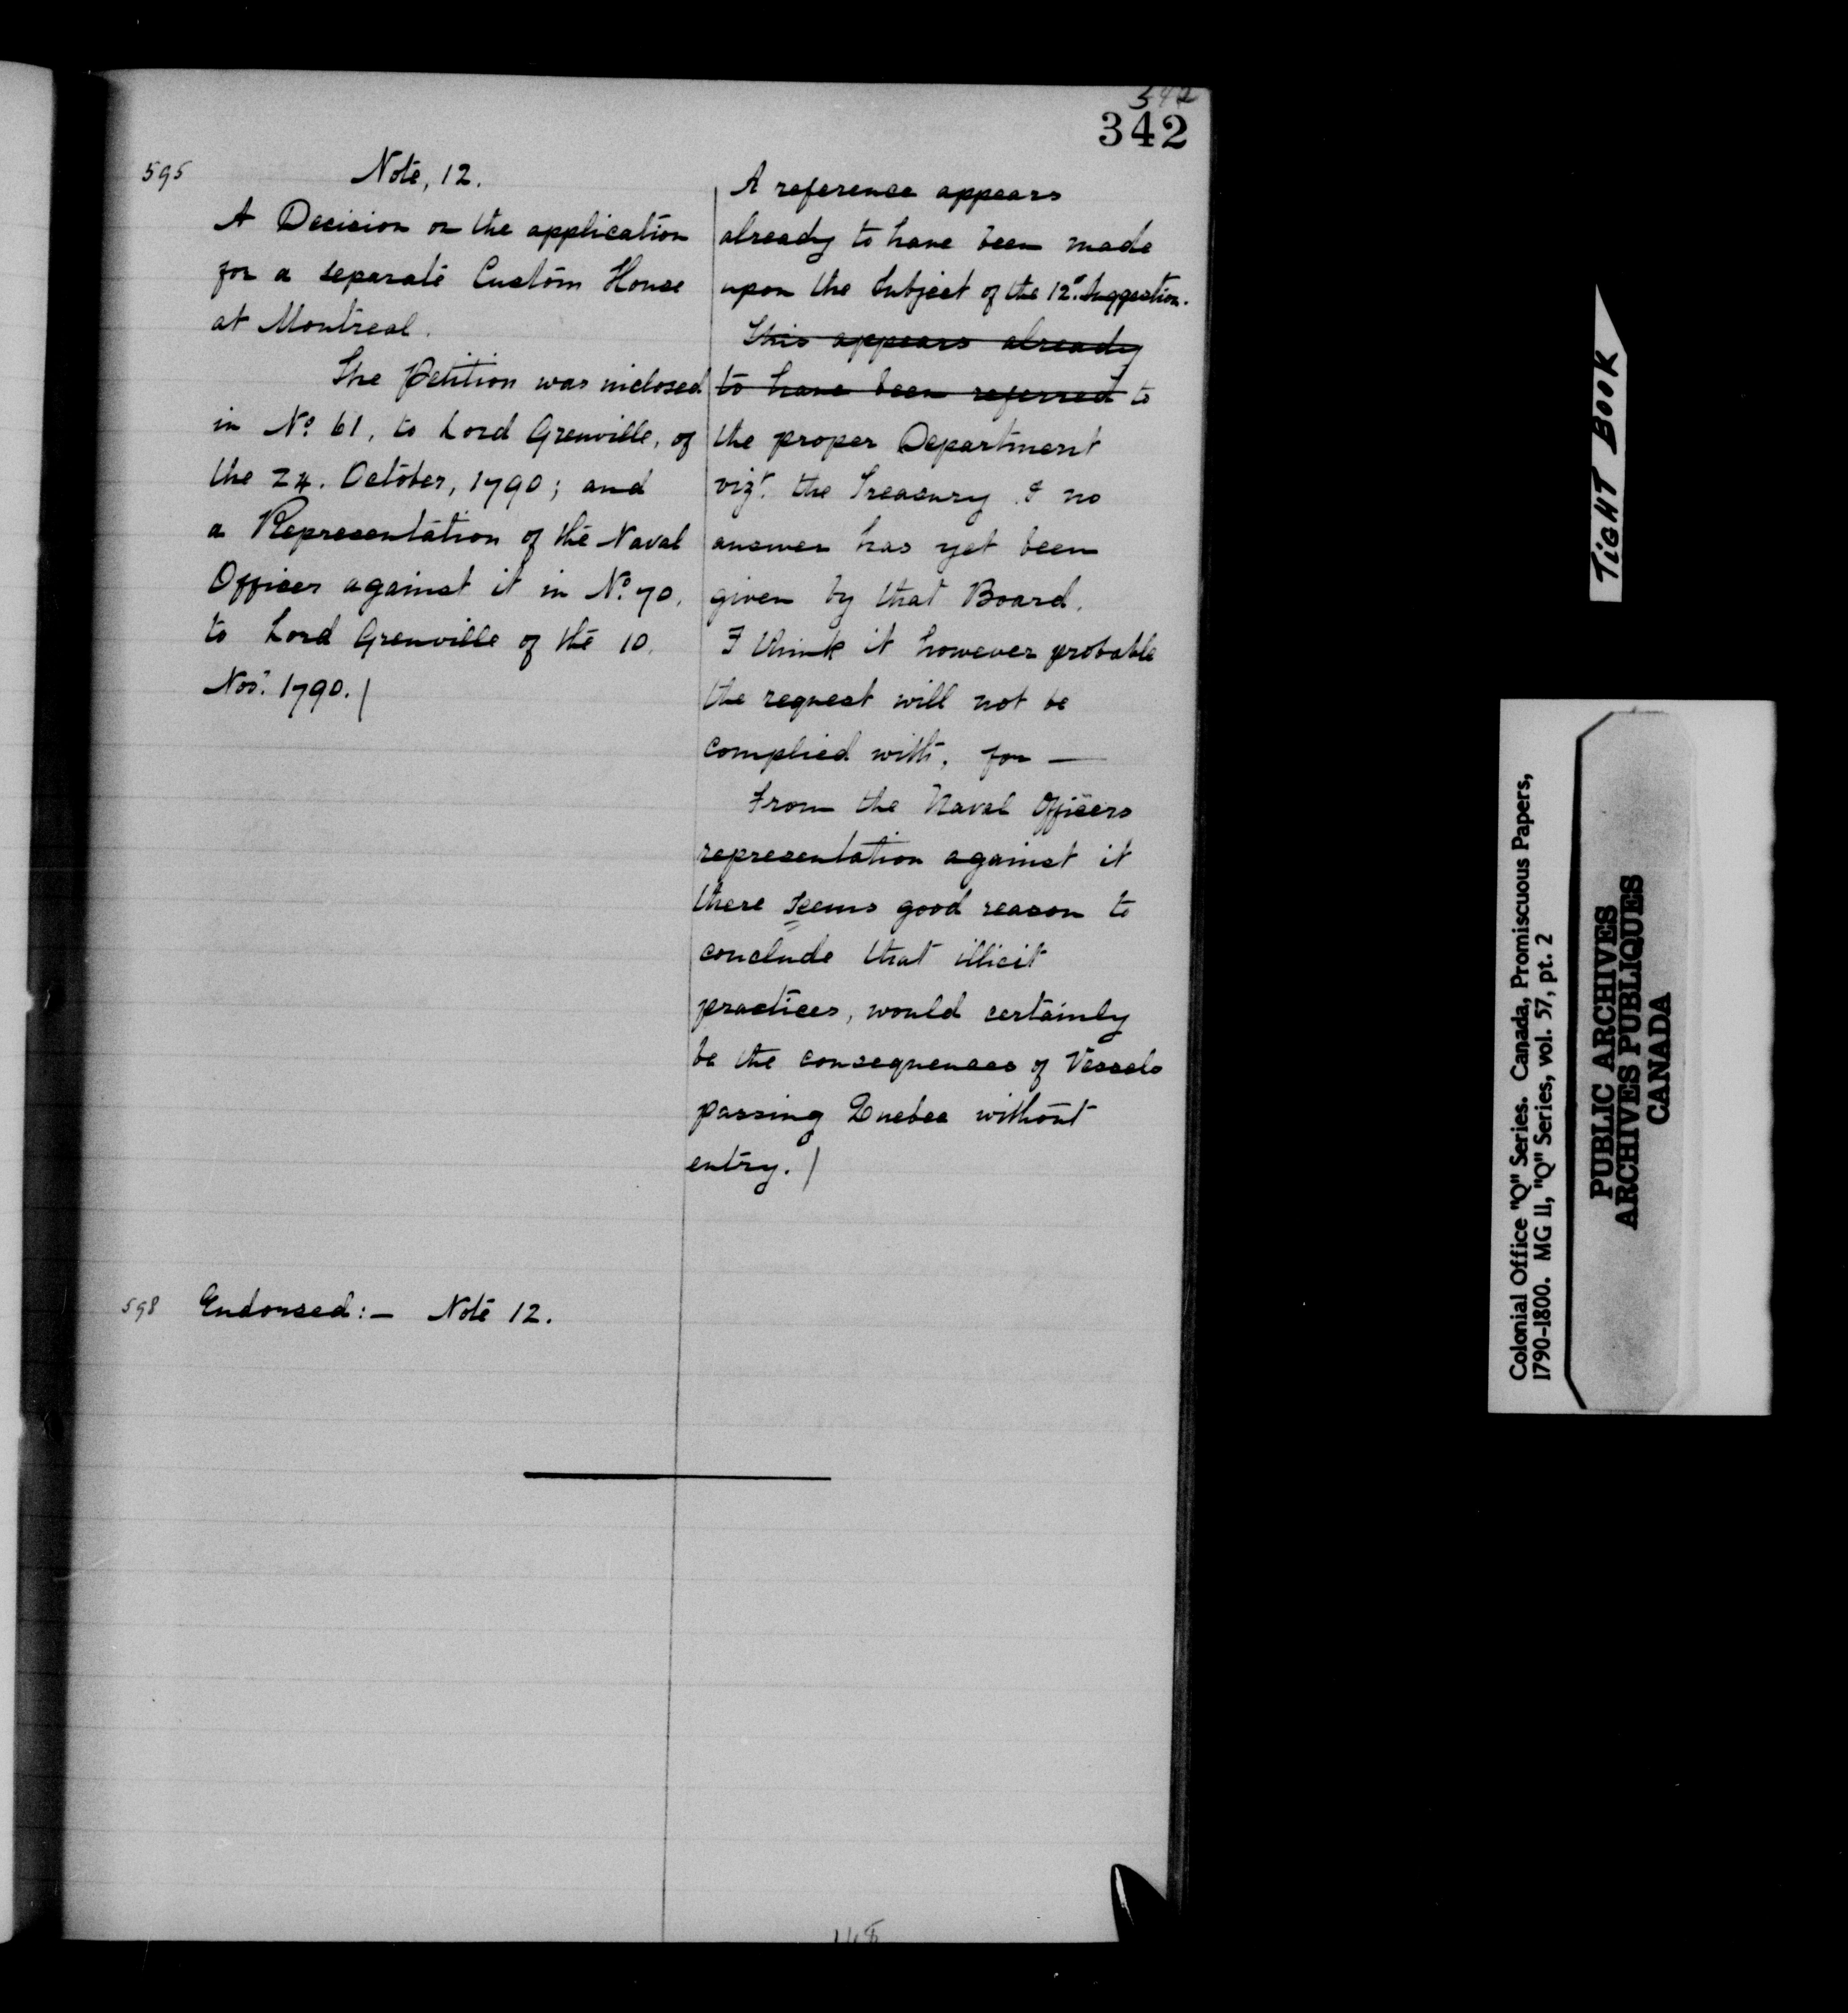 342
595
Note, 12.
A Decision on the application
for a separate Custom House
at Montreal.
The Petition was inclosed
in No. 61, to Lord Grenville, of
the 24. October, 1790; and
a Representation of the Naval
Officer against it in No. 70.
to Lord Grenville of the 10.
Novr. 1790./
A reference appears
already to have been made
upon the Subject of the 12o. Suggestion.
This appears already
to have been referred to
the proper Department
vizt. the Treasury & no
answer has yet been
given by that Board.
I think it however probable
the request will not be
complied with, for —
From the Naval Officers
representation against it
there seems good reason to
conclude that illicit
practices, would certainly
be the consequences of Vessels
passing Quebec without
entry./
598
Endorsed:— Note 12.
TIGHT BOOK
Colonial Office "Q" Series. Canada, Promiscuous Papers,
1790-1800. MG 11, "Q" Series, vol. 57, pt. 2
PUBLIC ARCHIVES
ARCHIVES PUBLIQUES
CANADA